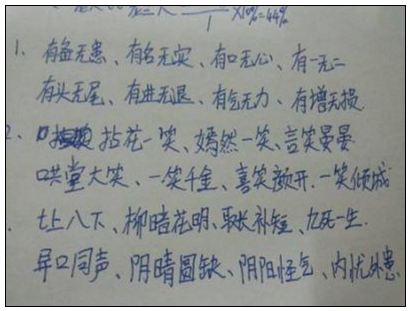 ×10%=44%
1. 有备无患、有名无实、有口无心、有一无二
有头无尾、有进无退、有气无力、有增无损
2、拈花一笑、嫣然一笑、言笑晏晏
哄堂大笑、一笑千金、喜笑颜开.一笑倾城
七上八下、柳暗花明、取长补短、九死一生.
异口同声、阴晴圆缺、阴阳怪气、内忧外患.